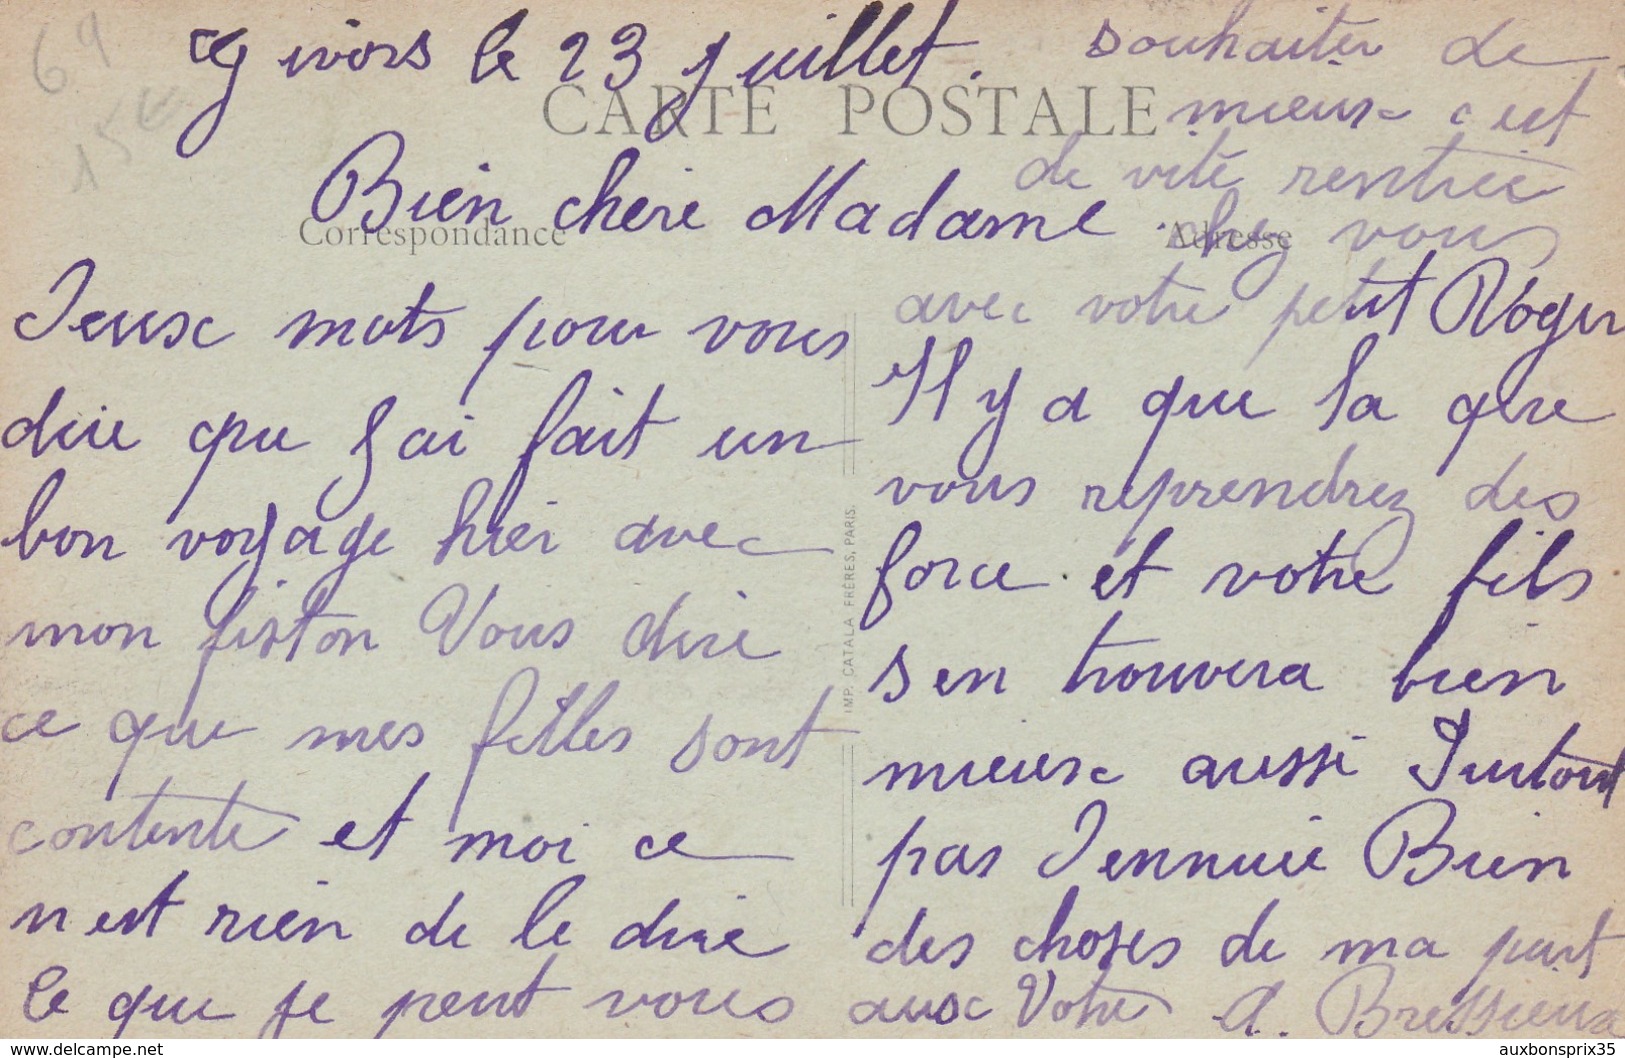 69
15 €
Givors le 23 Juillet.
CARTE POSTALE
Bien chere Madame
Correspondance
Deux mots pour vous
dire que J ai fait un
bon voyage hier avec
mon fiston Vous dire
ce que mes filles sont
contente et moi ce
n est rien de le dire
Ce que je peut vous
souhaiter de
mieux c est
de vite rentrée
chez vous
Adresse
avec votre petit Roger
Il y a que la que
vous reprendrez des
force et votre fils
s en trouvera bien
mieux aussi Surtout
pas Jennuie Bien
des choses de ma part
aux Votre A. Bressieux
IMP. CATALA FRÈRES, PARIS.
auxbonsprix35
www.delcampe.net